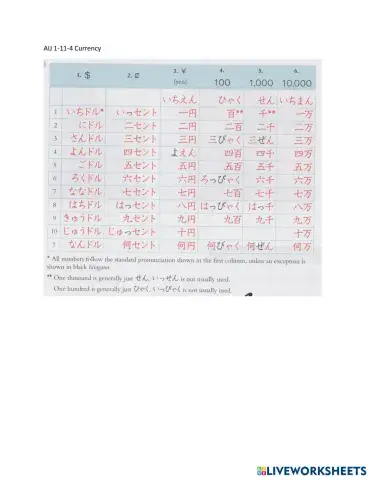 AU 1-11-4 Currency
1. $ 2. ¢ 3. ¥ (yen) 4. 100 5. 1,000 6. 10,000
いちえん ひゃく せん いちまん
1 いちドル* いっセント 一円 百** 千** 一万
2 にドル 二セント 二円 二百 二千 二万
3 さんドル 三セント 三円 三びゃく 三ぜん 三万
4 よんドル 四セント よえん 四百 四千 四万
5 ごドル 五セント 五円 五百 五千 五万
6 ろくドル 六セント 六円 ろっぴゃく 六千 六万
7 ななドル 七セント 七円 七百 七千 七万
8 はちドル はっセント 八円 はっぴゃく はっ千 八万
9 きゅうドル 九セント 九円 九百 九千 九万
10 じゅうドル じゅっセント 十円 十万
? なんドル 何セント 何円 何びゃく 何ぜん 何万
* All numbers follow the standard pronunciation shown in the first column, unless an exception is
shown in black hiragana.
** One thousand is generally just せん. いっせん is not usually used.
One hundred is generally just ひゃく. いっぴゃく is not usually used.
LIVEWORKSHEETS